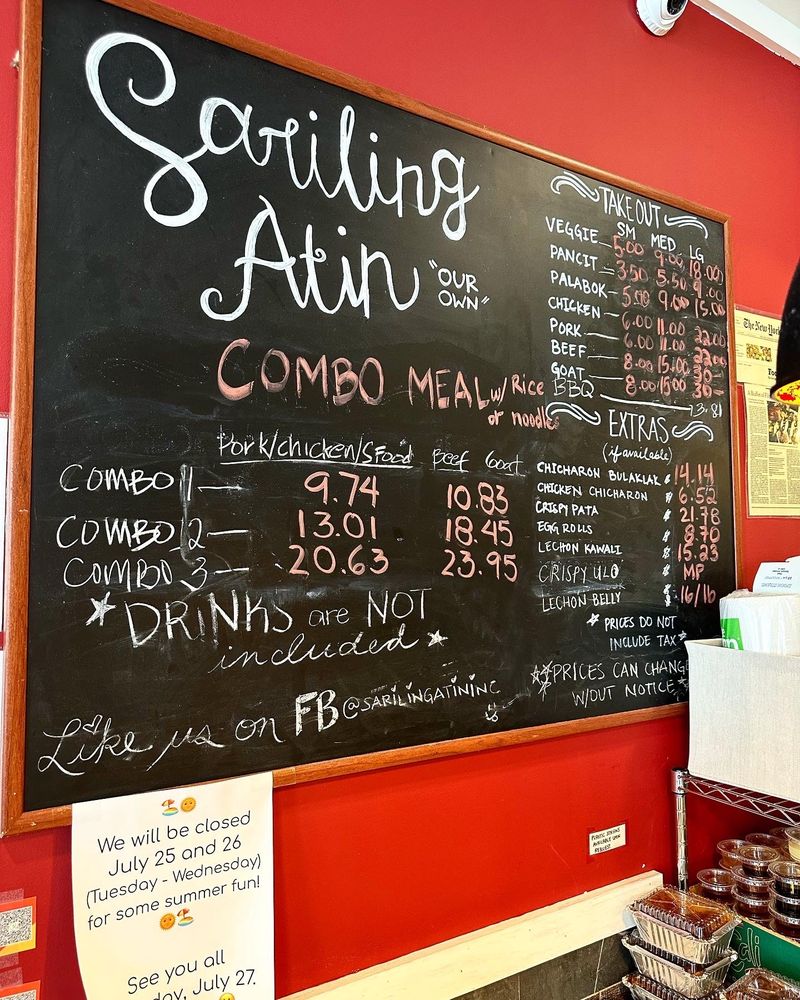 Sariling
Atin "OUR OWN"
COMBO MEAL w/ Rice or noodles
Pork/chicken/SFood Beef Goat
COMBO 1 — 9.74 10.83
COMBO 2 — 13.01 18.45
COMBO 3 — 20.63 23.95
*DRINKS are NOT
included*
Like us on FB @SARILINGATININC
TAKE OUT
SM MED LG
VEGGIE 5.00 9.00 18.00
PANCIT 3.50 5.50 9.00
PALABOK 5.00 9.00 15.00
CHICKEN 6.00 11.00 22.00
PORK 6.00 11.00 22.00
BEEF 8.00 15.00 30-
GOAT 8.00 15.00 30-
BBQ
EXTRAS
(if available)
CHICHARON BULAKLAK 14.14
CHICKEN CHICHARON 6.52
CRISPY PATA 21.78
EGG ROLLS 8.70
LECHON KAWALI 15.23
CRISPY ULO MP
LECHON BELLY 16/lb
*PRICES DO NOT
INCLUDE TAX*
**PRICES CAN CHANGE
W/OUT NOTICE*
The New York
PLASTIC SPOONS
AVAILABLE UPON
REQUEST
We will be closed
July 25 and 26
(Tuesday - Wednesday)
for some summer fun!
See you all
day, July 27.